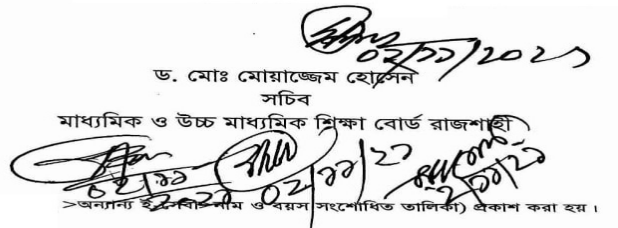 ০২/১১/২০২১
ড. মোঃ মোয়াজ্জেম হোসেন
সচিব
মাধ্যমিক ও উচ্চ মাধ্যমিক শিক্ষা বোর্ড রাজশাহী
০২/১১/২১
>অন্যান্য ই-সেবা>নাম ও বয়স সংশোধিত তালিকা) প্রকাশ করা হয়।